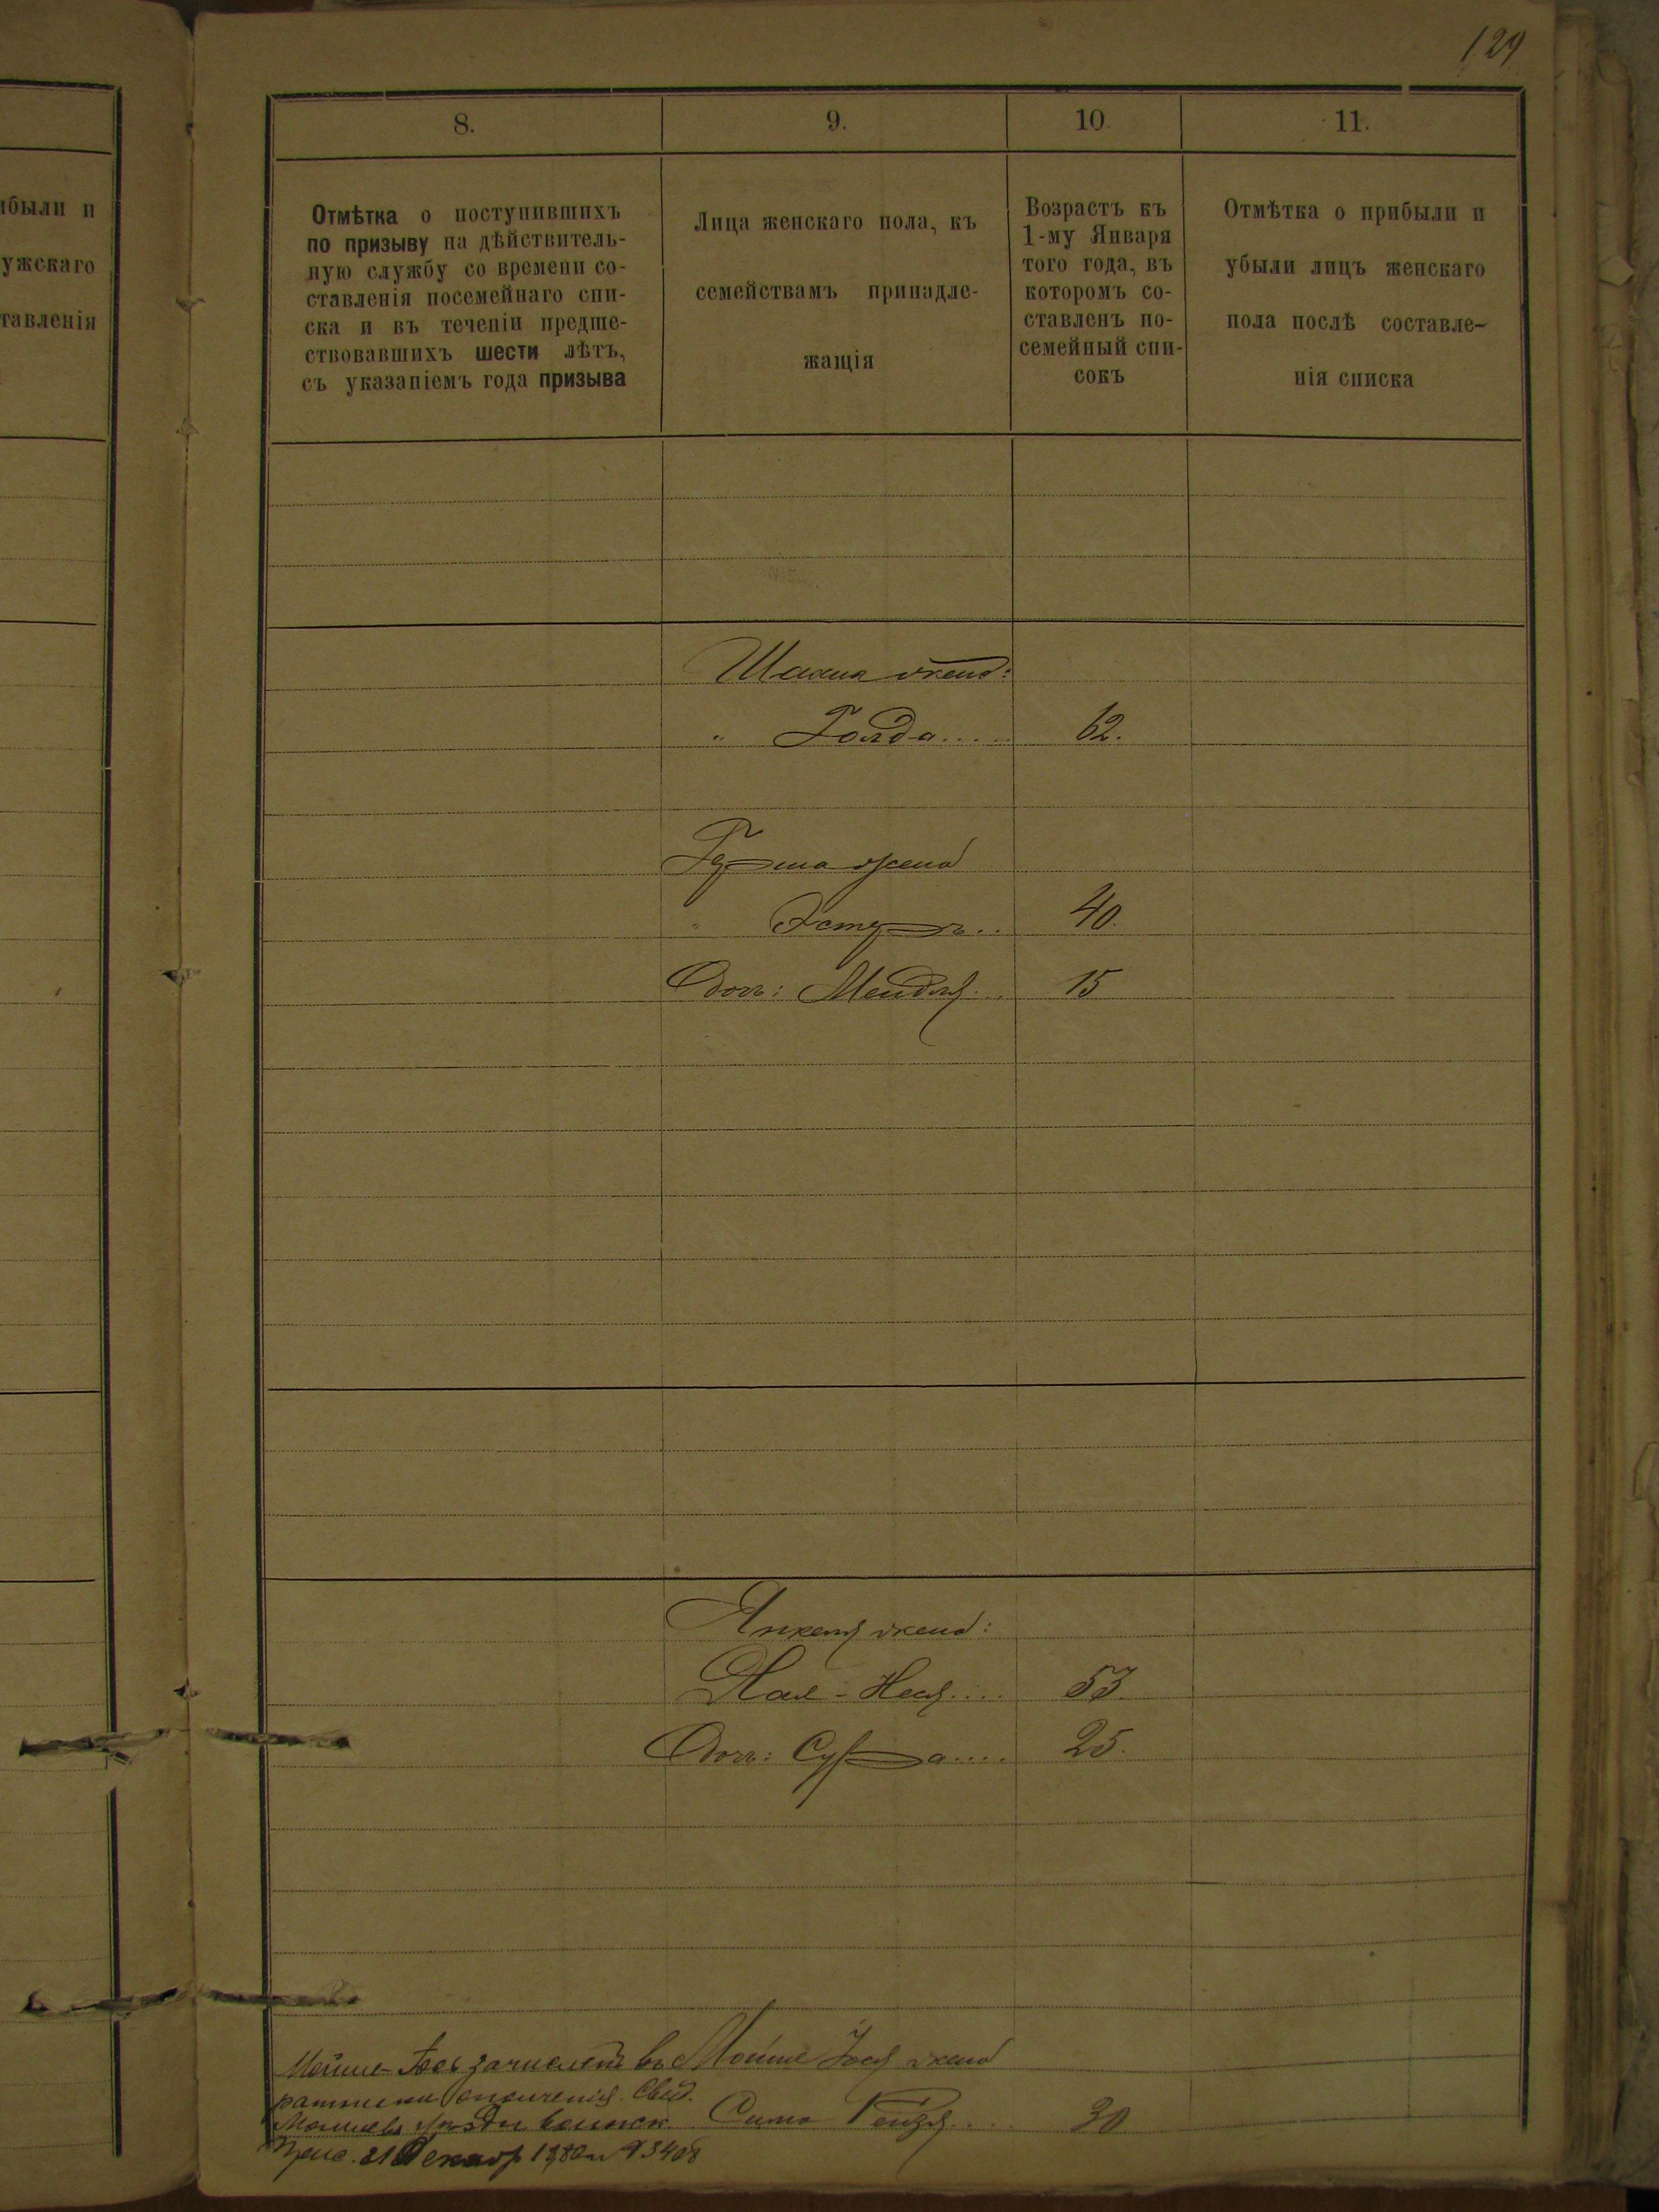 129
были и
ужскаго
тавленія
8.
9.
10.
11.
Отмѣтка о поступившихъ
по призыву на дѣйствитель-
ную службу со времени со-
ставленія посемейнаго спи-
ска и въ теченіи предше-
ствовавшихъ шести лѣтъ,
съ указаніемъ года призыва
Лица женскаго пола, къ
семействамъ принадле-
жащія
Возрастъ къ
1-му Января
того года, въ
которомъ со-
ставленъ по-
семейный спи-
сокъ
Отмѣтка о прибыли и
убыли лицъ женскаго
пола послѣ составле-
нія списка
жена:
" Голда..... 62.
Герша жена
" Эстеръ.. 40.
Дочь: Мендля... 15
Янкеля жена:
Хая-Нея.... 53.
Дочь: Сурра.... 25.
Мойше-Іось зачисленъ въ
ратники ополченія. Свид.
воинск
21 Декабр 1880 г 3408
Мойше Іося жена
Сима Рейзя.... 30.